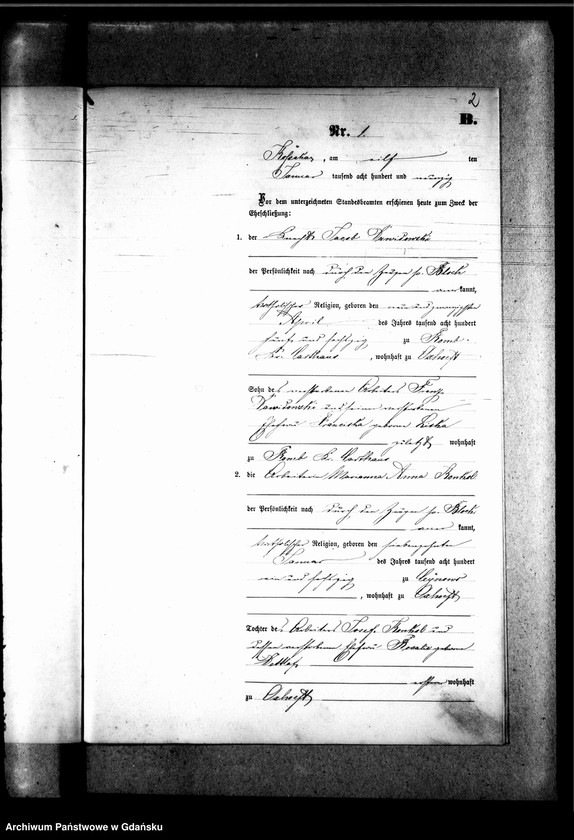 2
B.
Nr. 1.
am eilf ten
Januar tausend acht hundert und neunzig
Vor dem unterzeichneten Standesbeamten erschienen heute zum Zweck der
Eheschließung:
1. der Knecht Jacob
der Persönlichkeit nach durch den Zeugen p. Block
aner kannt,
katholischer Religion, geboren den neun und zwanzigsten
April des Jahres tausend acht hundert
fünf und sechzig zu
Kr. Carthaus, wohnhaft zu Oxhöft
Sohn des verstorbenen Arbeiters Franz
und seiner verstorbenen
Ehefrau Franciska geborene
zuletzt wohnhaft
zu Kr. Carthaus
2. die Arbeiterin Marianna Anna
der Persönlichkeit nach durch den Zeugen p. Block
aner kannt,
katholischer Religion, geboren den siebenzehnten
Januar des Jahres tausend acht hundert
ein und sechzig zu
, wohnhaft zu Oxhöft
Tochter des Arbeiters Josef und
dessen verstorbene Ehefrau Rosalie geborene
ersterer wohnhaft
zu Oxhöft
Archiwum Państwowe w Gdańsku